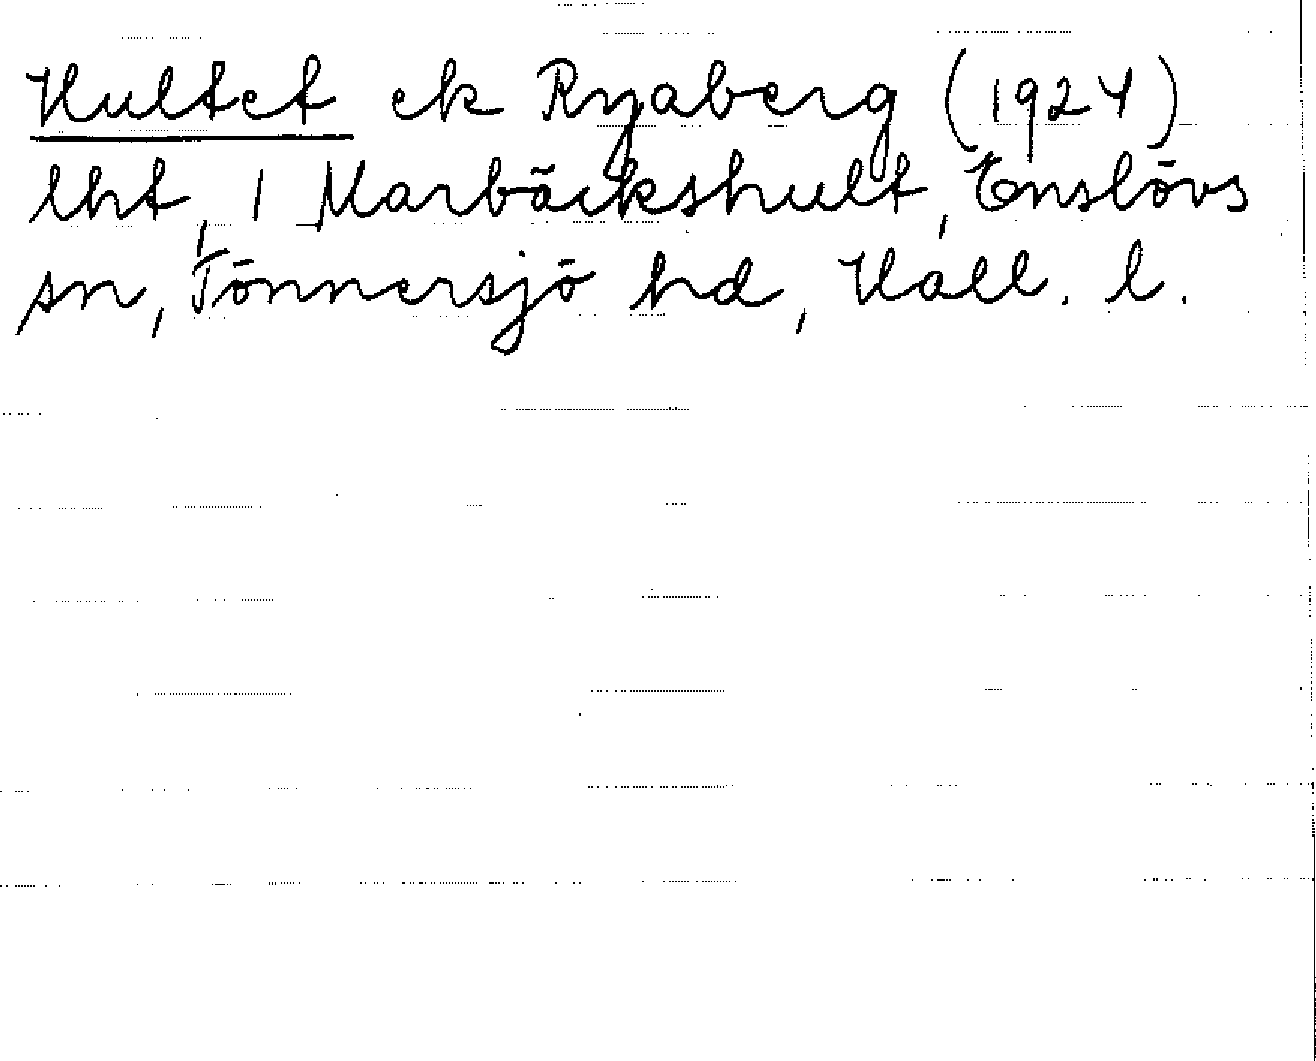 Hultet ek Ryaberg (1924)
lht, 1 Marbäckshult, Enslövs
sn, Tönnersjö hd, Hall. l.